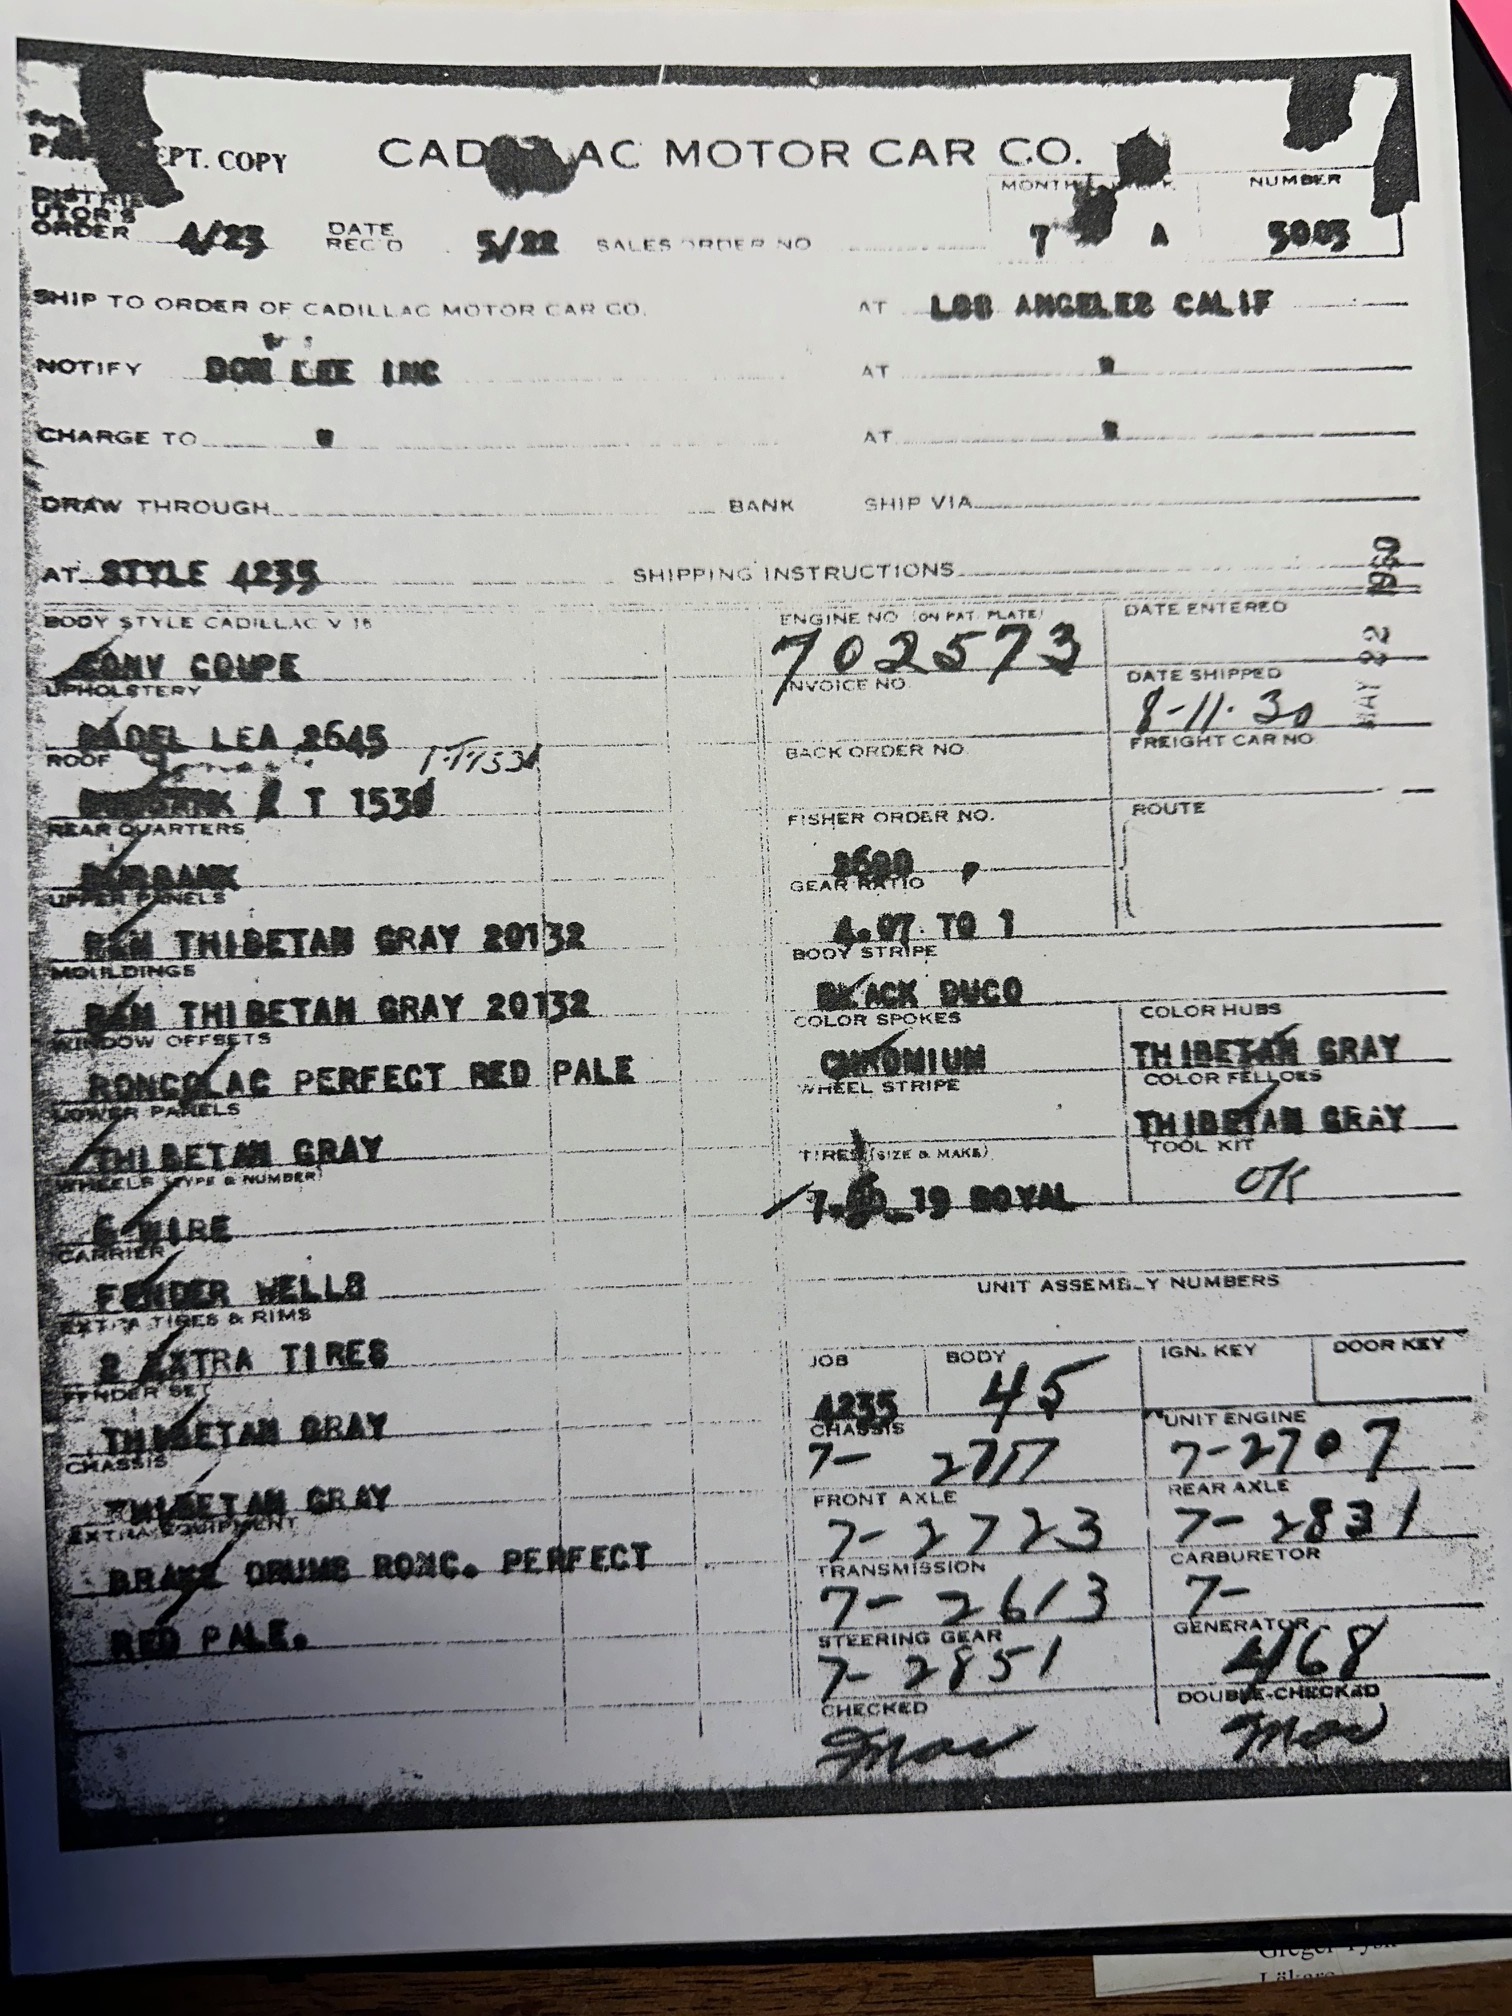 EPT. COPY
CAD AC MOTOR CAR CO.
MONTH
NUMBER
DISTRIB
UTOR'S
ORDER 4/23 DATE REC'D 5/22 SALES ORDER NO
7 A
SHIP TO ORDER OF CADILLAC MOTOR CAR CO. AT LOS ANGELES CALIF
NOTIFY DON LEE INC AT "
CHARGE TO " AT "
DRAW THROUGH BANK SHIP VIA
AT STYLE 4235 SHIPPING INSTRUCTIONS
MAY 22 1930
BODY STYLE CADILLAC V 16
CONV COUPE
UPHOLSTERY
LEA 2645
ROOF
T 153
REAR QUARTERS
BURBANK
UPPER PANELS
THIBETAN GRAY 20132
MOULDINGS
THIBETAN GRAY 20132
WINDOW OFFSETS
RONCOLAC PERFECT RED PALE
LOWER PANELS
THIBETAN GRAY
WHEELS (TYPE & NUMBER)
6 WIRE
CARRIER
FENDER WELLS
EXTRA TIRES & RIMS
2 EXTRA TIRES
FENDER SET
THIBETAN GRAY
CHASSIS
THIBETAN GRAY
EXTRA EQUIPMENT
BRAKE DRUMS RONC. PERFECT
RED PALE.
ENGINE NO (ON PAT. PLATE)
702573
DATE ENTERED
INVOICE NO.
DATE SHIPPED
8-11-30
BACK ORDER NO.
FREIGHT CAR NO
FISHER ORDER NO.
ROUTE
GEAR RATIO
4.07 TO 1
BODY STRIPE
BLACK DUCO
COLOR SPOKES
CHROMIUM
COLOR HUBS
THIBETAN GRAY
WHEEL STRIPE
COLOR FELLOES
THIBETAN GRAY
TIRES (SIZE & MAKE)
19 ROYAL
TOOL KIT
OK
UNIT ASSEMBLY NUMBERS
JOB
4235
BODY
45
IGN. KEY
DOOR KEY
CHASSIS
7-
UNIT ENGINE
7-2707
FRONT AXLE
7-2723
REAR AXLE
7-2831
TRANSMISSION
7-2613
CARBURETOR
7-
STEERING GEAR
7-2851
GENERATOR
4168
CHECKED
DOUBLE-CHECKED